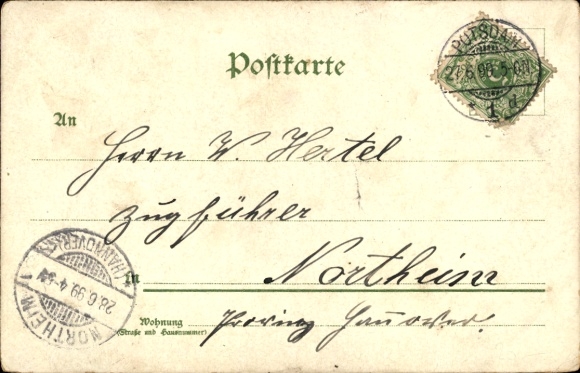 POTSDAM
27.6.99.5-6N.
* 1 d.
Postkarte
An
Herrn W. Hertel
Zugführer
in Northeim
Wohnung
(Straße und Hausnummer)
Provinz Hannover.
NORTHEIM 1
28.6.99.4-5N
(HANNOVER)